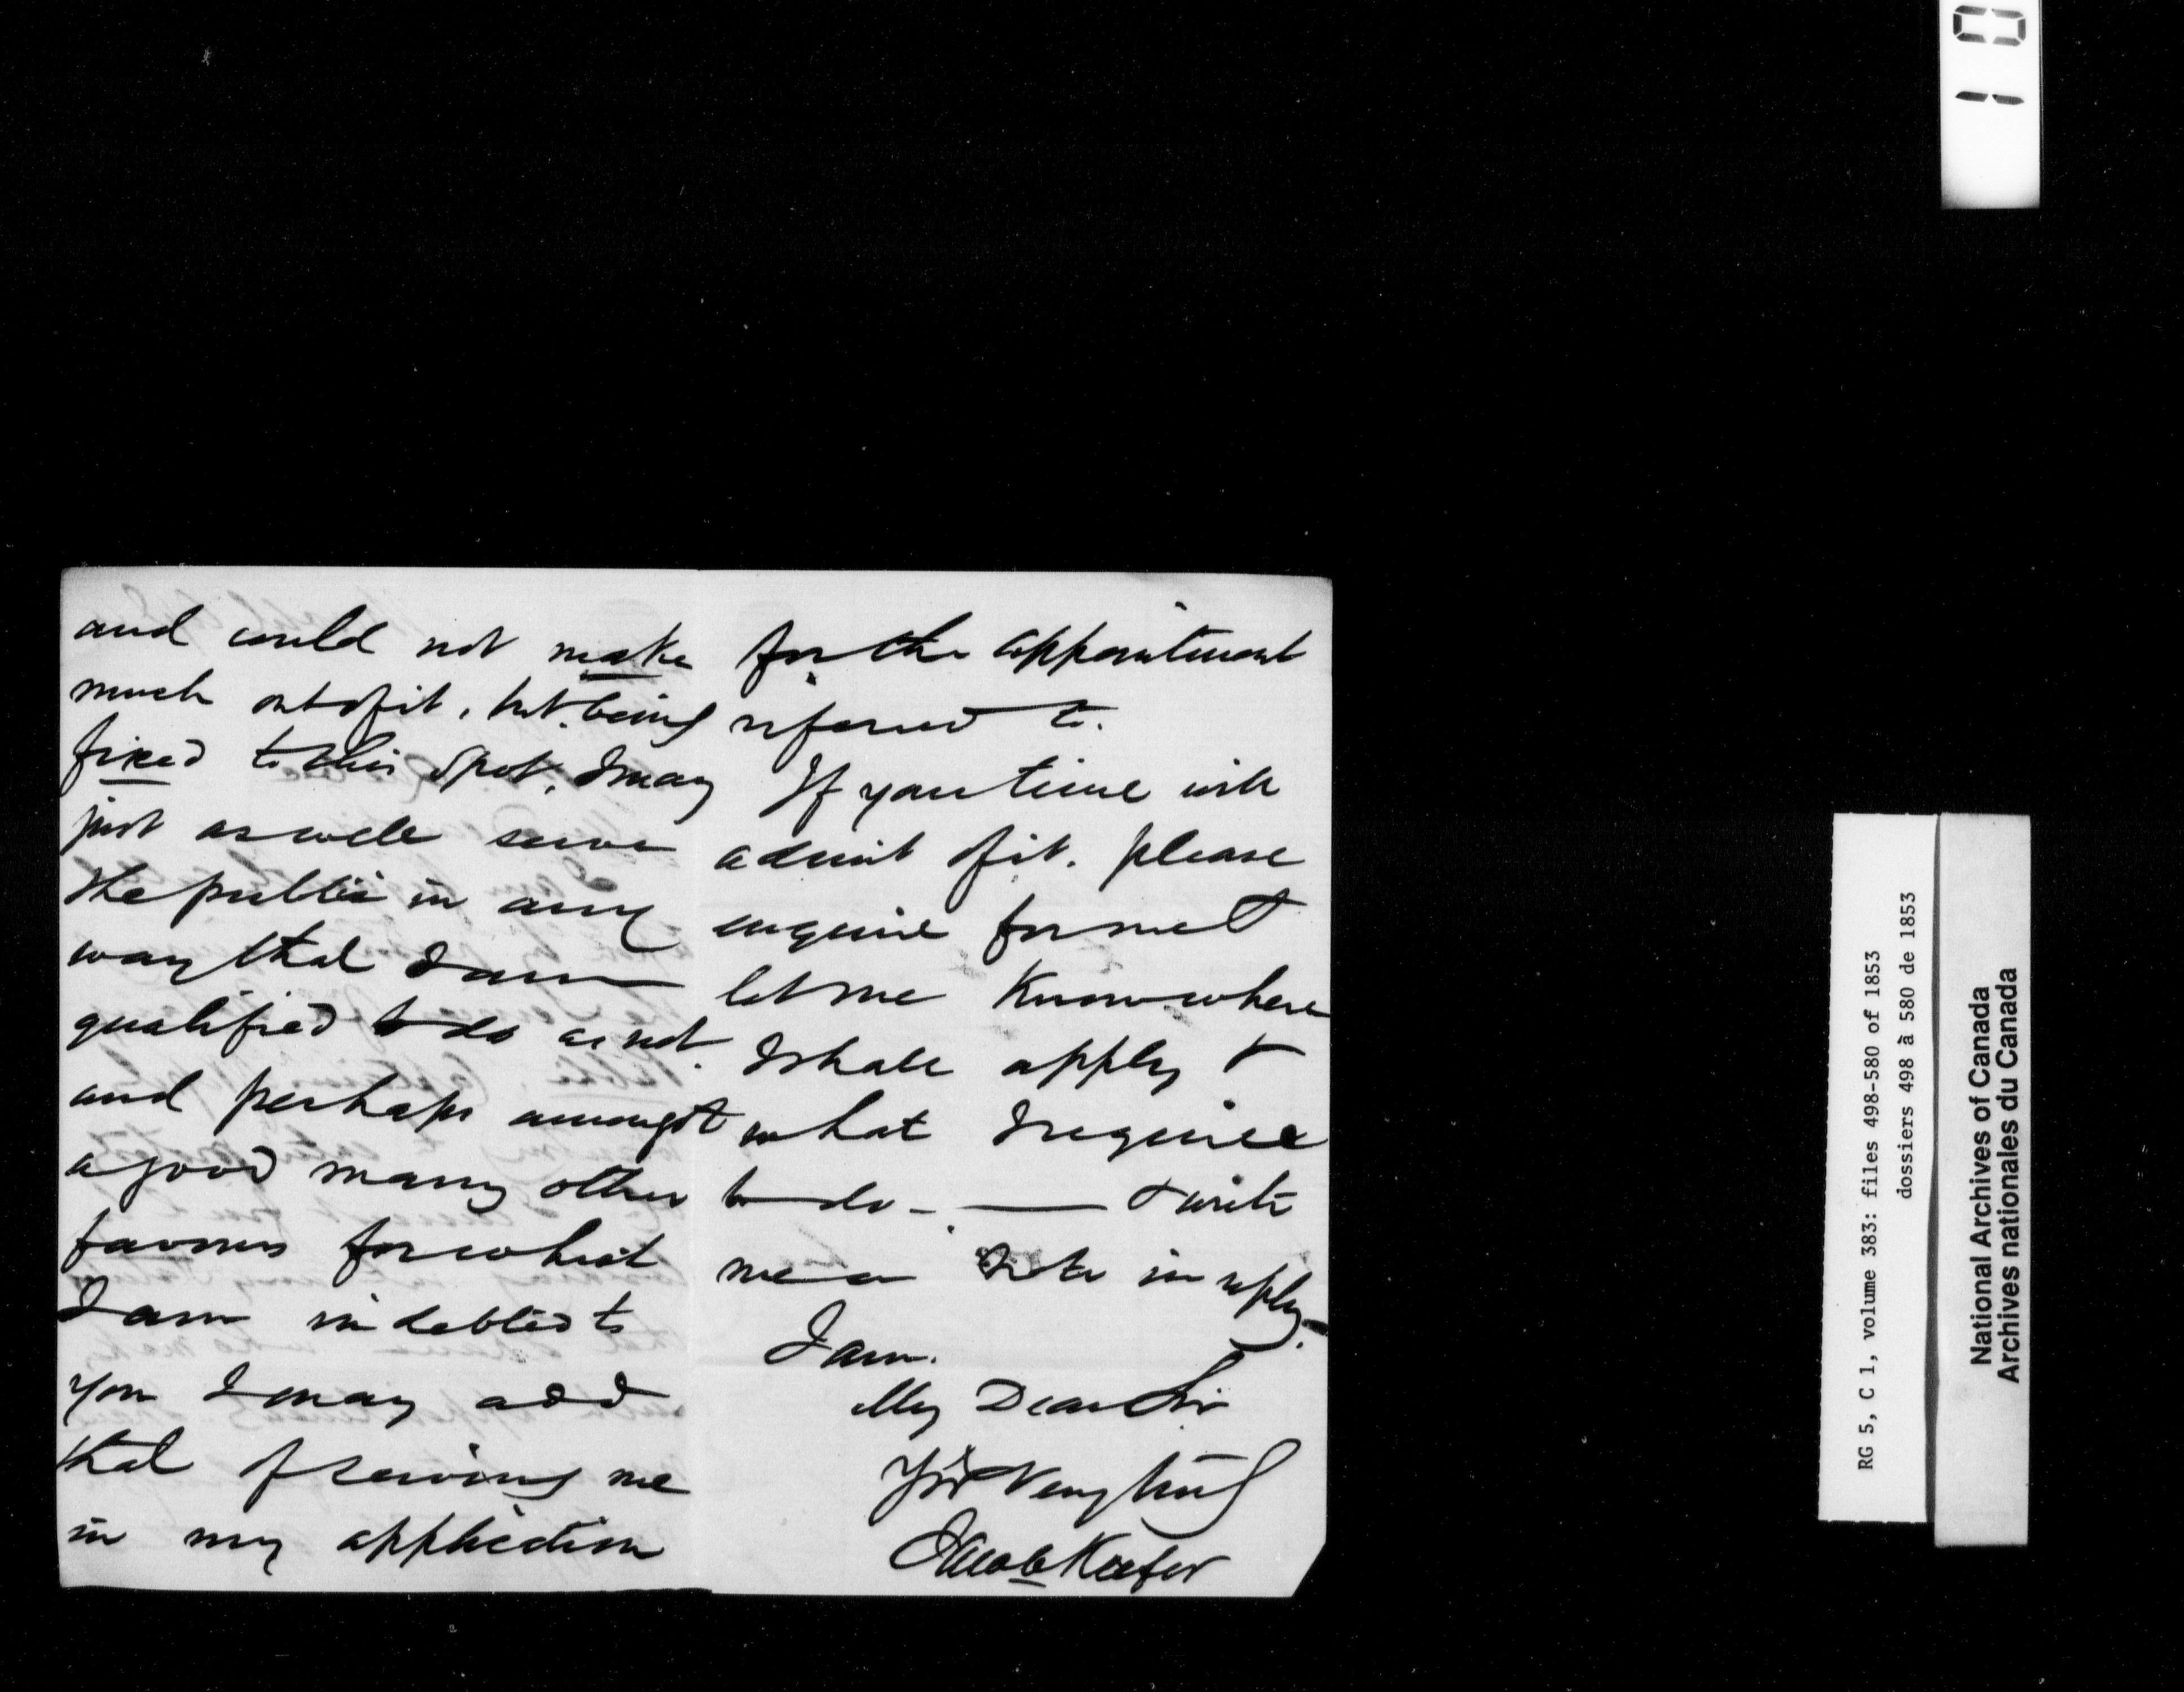 and could not make
much out of it, but being
fixed to this spot, I may
just as well serve
the public in any
way that I am
qualified to do as not.
and perhaps amongst
a good many other
favours for which
I am indebted to
you I may add
that of serving me
in my application
for the appointment
referred to.
If your time will
admit of it. please
enquire for me &
let me know where
I shall apply &
what I require
to do - — & write
me a note in reply.
I am.
My Dear Sir
Yrs Very truly
Jacob Keefer
10
RG 5, C 1, volume 383: files 498-580 of 1853
dossiers 498 à 580 de 1853
National Archives of Canada
Archives nationales du Canada